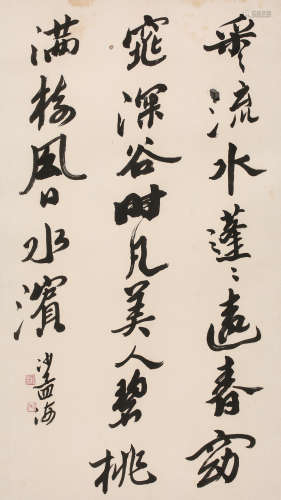 采〻流水蓬〻遠春窈
窕深谷時見美人碧桃
滿樹風日水濱
沙孟海